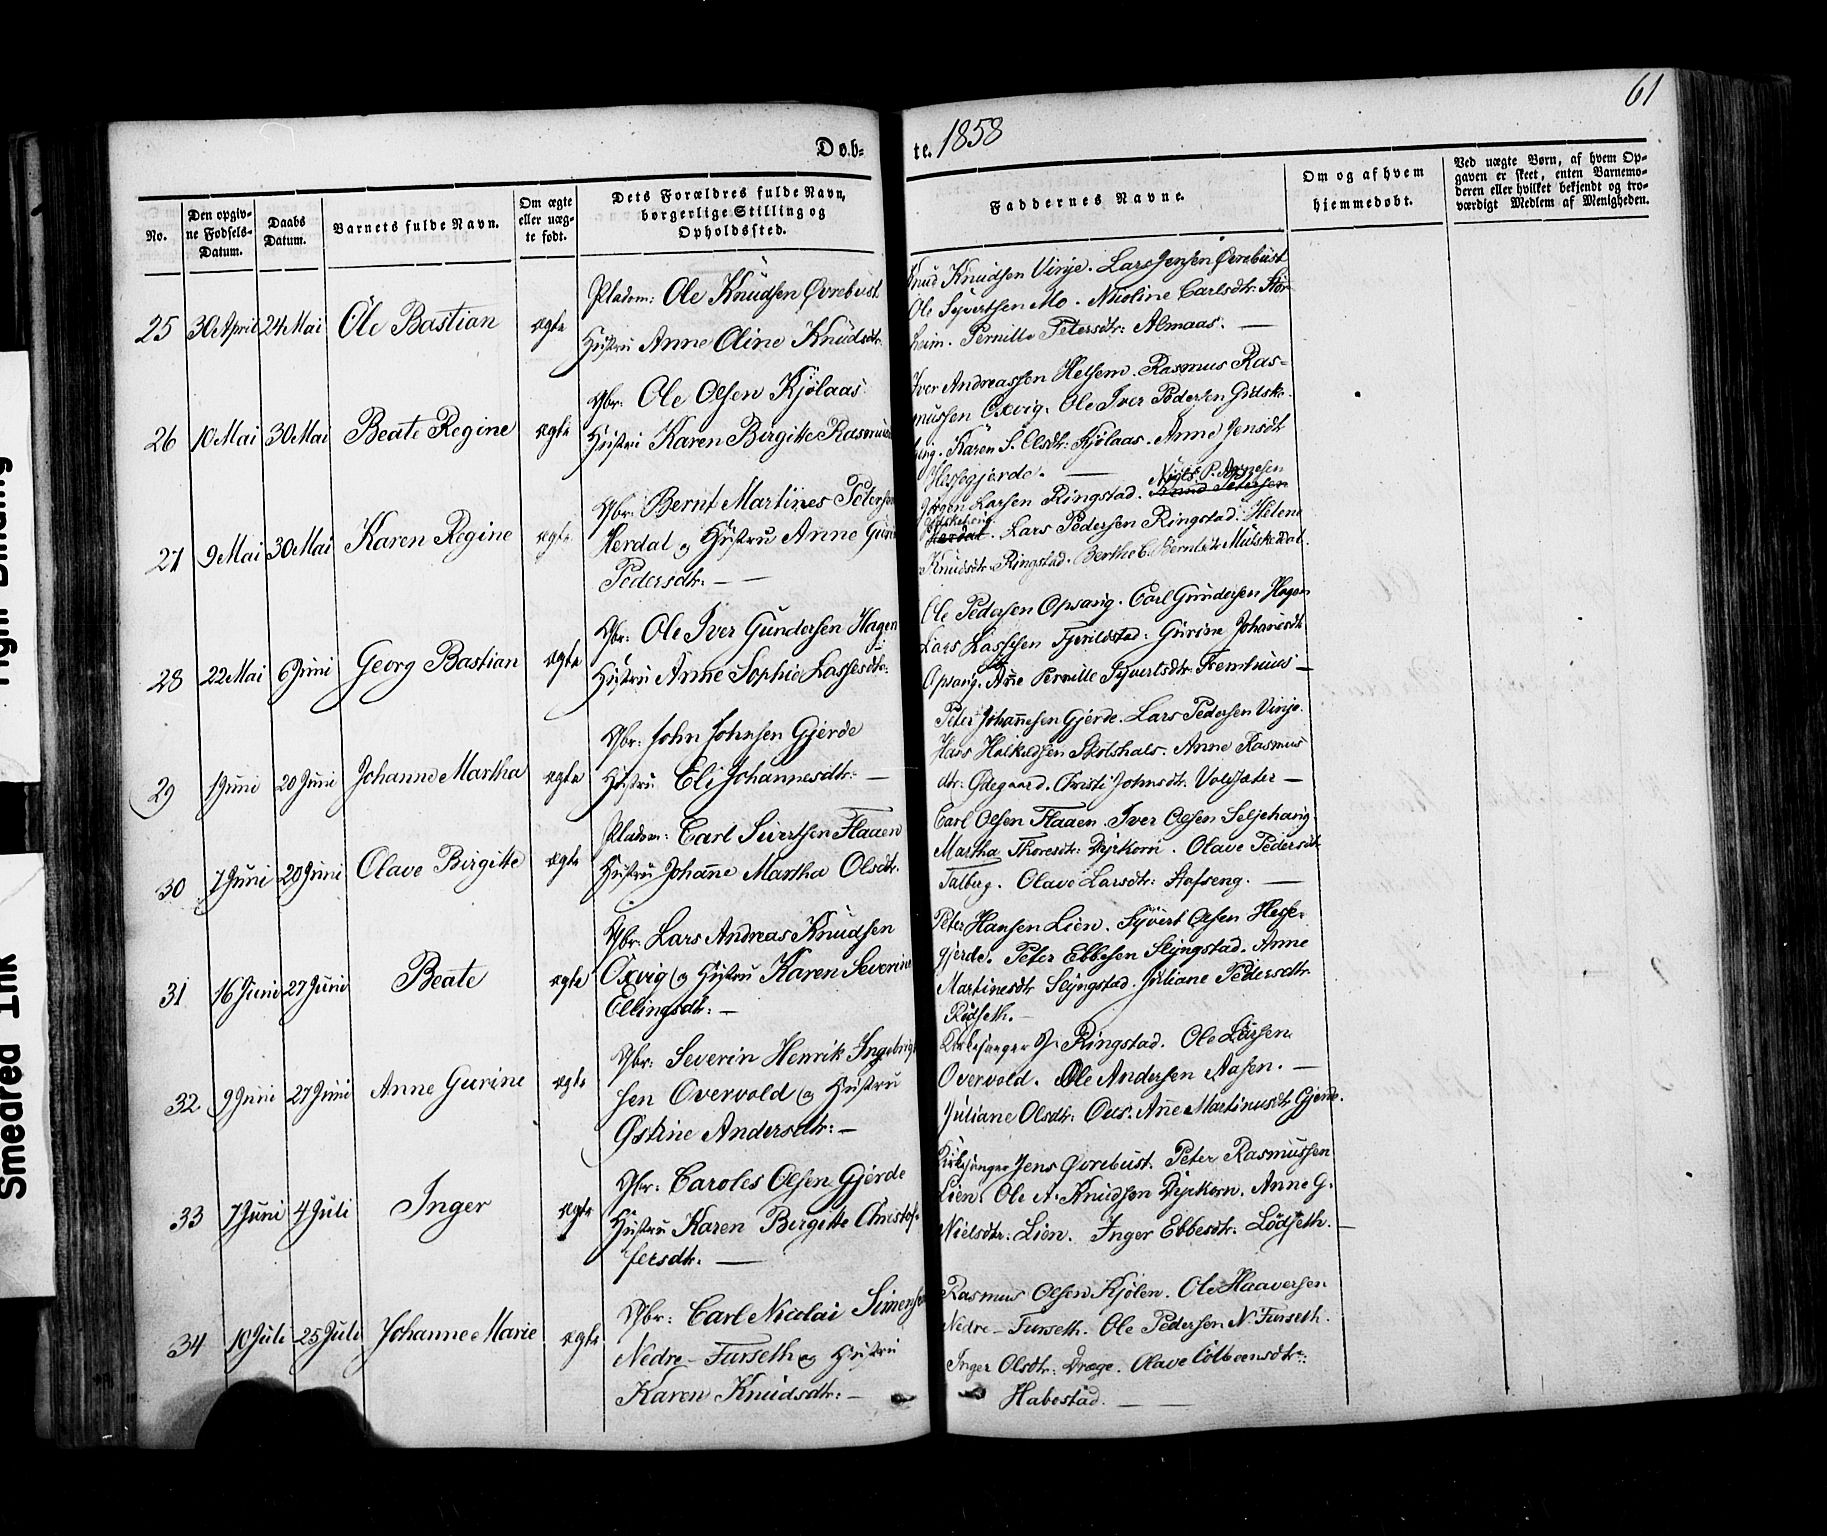 61
Døb-
te. 1858
No.
Den opgiv-
ne Fødsels-
Datum.
Daabs
Datum.
Barnets fulde Navn.
Om ægte
eller uæg-
te født.
Dets Forældres fulde Navn,
borgerlige Stilling og
Opholdssted.
Faddernes Navne.
Om og af hvem
hjemmedøbt.
Ved uægte Børn, af hvem Op-
gaven er skeet, enten Barnemo-
deren eller hvilket bekjendt og tro-
værdigt Medlem af Menigheden.
25 30 April 24 Mai Ole Bastian ægte
Pladsm: Ole Knudsen Øvrebust
Hustru Anne Oline Knudsdtr.
Knud Knudsen Vinje. Lars Jensen Øvrebust
Ole Syvertsen Mo. Nicoline Carlsdtr: Stor-
heim. Pernille Petersdtr: Almaas. —
26 10 Mai 30 Mai Beate Regine ægte
Gbr: Ole Olsen Kjølaas
Hustru Karen Birgitte Rasmus
Iver Andreassen Helsem. Rasmus Ras-
mussen Oxvig. Ole Iver Pedersen Gidske-
hng. Karen S. Olsdtr: Kjølaas. Anne Jensdtr
Hassgjerde. —
27 9 Mai 30 Mai Karen Regine ægte
Gbr: Bernt Martines Petersen
Herdal og Hustru Anne Guri
Pedersdtr: —
Niels P. Arnesen
Jørgen Larsen Ringstad. Knud Petersen
Herdal. Lars Pedersen Ringstad. Helene
Knudsdtr: Ringstad. Berthe B. Berntsdtr Mulskedal.
28 22 Mai 6 Juni Georg Bastian ægte
Gbr: Ole Iver Gundersen Hagen
Hustru Anne Sophie Lassesdtr.
Ole Pedersen Opsang. Carl Gundersen Hagen
Lars Lassesen Fjeldstad: Gurine Johansdtr
Opsang. Anne Pernille Syvertsdtr: Fremhuus —
29 1 Juni 20 Juni Johanne Martha ægte
Gbr: John Johnsen Gjerde
Hustru Eli Johannesdtr: —
Peter Johannesen Gjerde. Lars Pedersen Vinje.
Hans Halkeldsen Skotshals. Anne Rasmus
dtr: Ødegaard. Christi Johnsdtr: Volsæter —
30 7 Juni 20 Juni Olave Birgitte ægte
Pladsm: Carl Sivertsen Flaaen
Hustru Johanne Martha Olsdtr.
Carl Olsen Flaaen. Iver Olsen Seljehaug
Martha Thoresdtr: Dyrkorn. Olave Pedersdtr
Talberg. Olave Larsdtr: Stafseng. —
31 16 Juni 27 Juni Beate ægte
Gbr: Lars Andreas Knudsen
Oxvig og Hustru Karen Severine
Ellingsdtr: —
Peter Hansen Lien. Syvert Olsen Hege-
gjerde. Peter Ebbesen Slyngstad. Anne
Martinesdtr Slyngstad. Juliane Pedersdtr
Rødseth. —
32. 9 Juni 27 Juni Anne Gurine ægte
Gbr: Severin Henrik Ingebrigt
sen Overvold og Hustru
Østrine Andersdtr: —
Kirkesanger J. Ringstad. Ole Larsen
Overvold. Ole Andersen Aasen. —
Juliane Olsdtr: Overv. Anne Martinusdtr Gjerde.
33 7 Juni 4 Juli Inger ægte
Gbr: Caroles Olsen Gjerde
Hustru Karen Birgitte Christof-
fersdtr. —
Kirkesanger Jens Øvrebust. Peter Rasmussen
Lien. Ole A. Knudsen Dyrkorn. Anne G.
Nielsdtr: Lien. Inger Ebbesdtr: Lødseth. —
34 10 Juli 25 Juli Johanne Marie ægte
Gbr: Carl Nicolai Simensen
Nedre-Furseth og Hustru
Karen Knudsdtr: —
Rasmus Olsen Kjølen. Ole Haaversen
Nedre-Furseth. Ole Pedersen N. Furseth.
Inger Olsdtr: Drage. Olave Colbeensdtr:
Habostad. —
Smeared Ink
Tight Binding